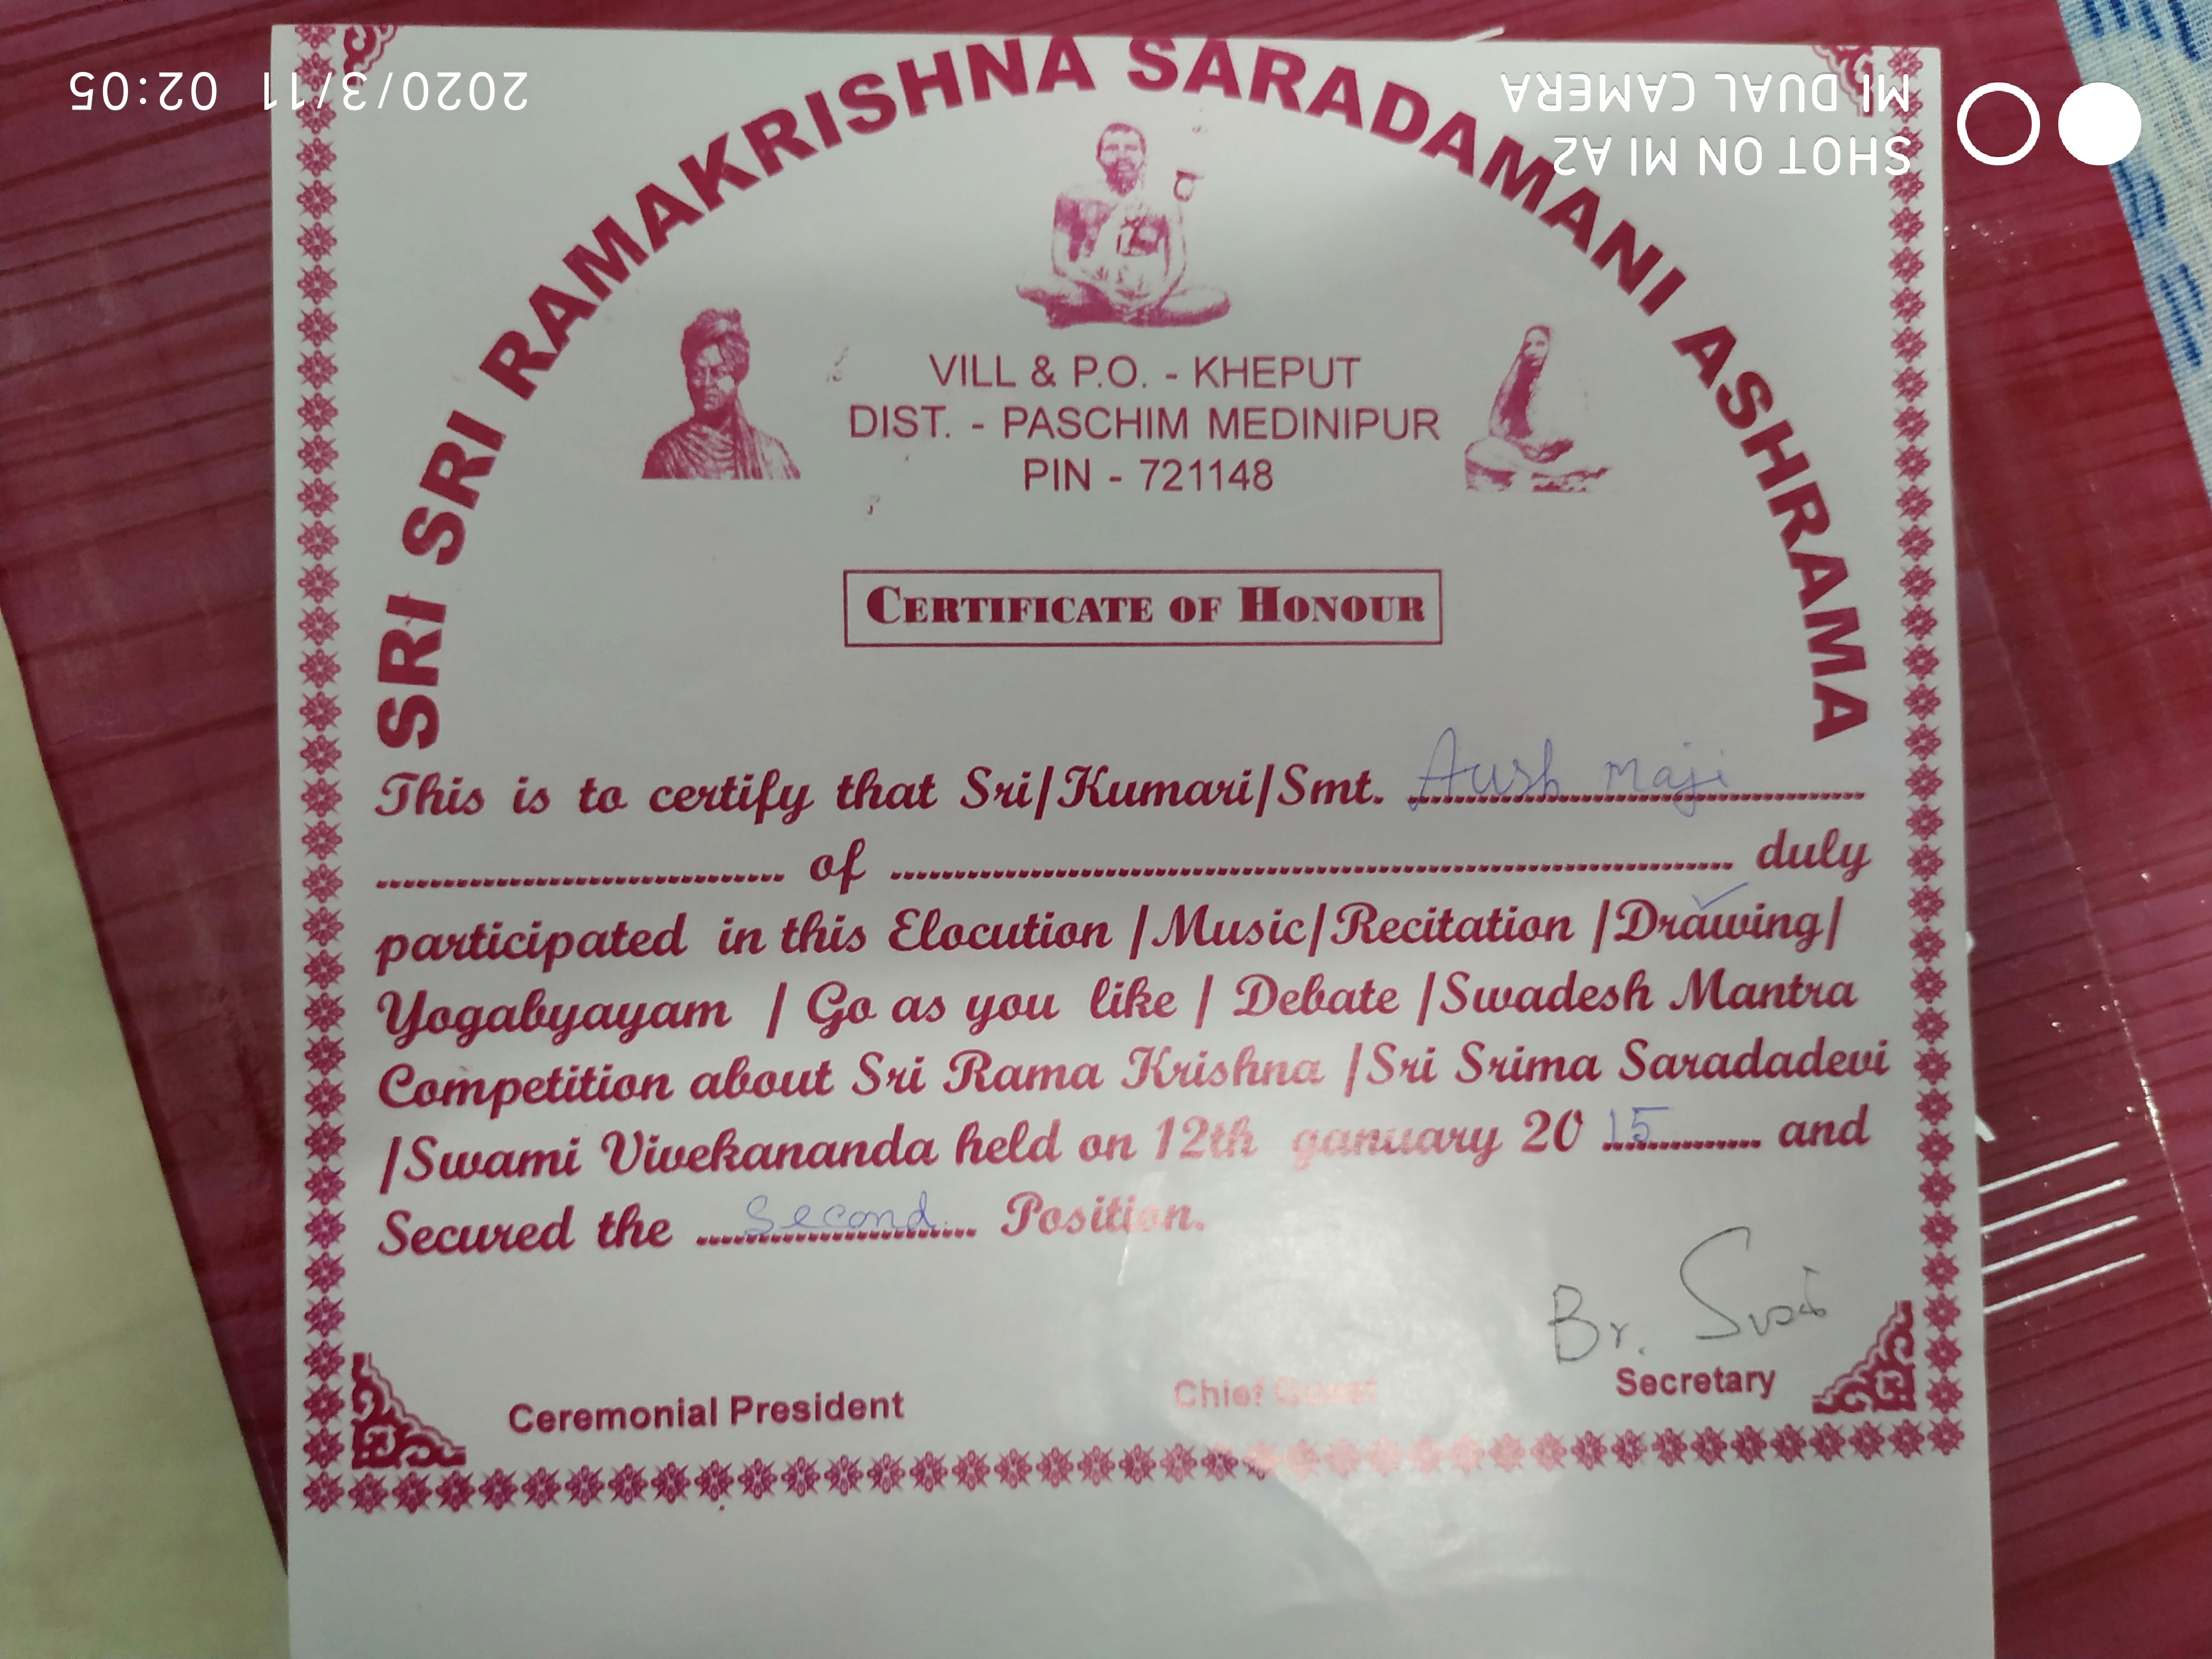 SRI SRI RAMAKRISHNA SARADAMANI ASHRAMA
VILL & P.O. - KHEPUT
DIST. - PASCHIM MEDINIPUR
PIN - 721148
CERTIFICATE OF HONOUR
This is to certify that Sri/Kumari/Smt. Aush Maji
of duly
participated in this Elocution / Music/Recitation / Drawing/
Yogabyayam / Go as you like / Debate /Swadesh Mantra
Competition about Sri Rama Krishna /Sri Srima Saradadevi
/Swami Vivekananda held on 12th january 20 15 and
Secured the Second Position.
Br.
Ceremonial President Chief Guest Secretary
SHOT ON MI A2
MI DUAL CAMERA
2020/3/11 02:05